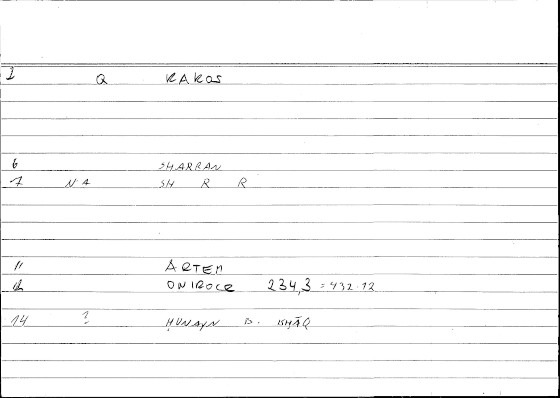 1 Q RAROS
6 SHARRAN
7 NA SH R R
11 ARTEM
12 ONIROCR 234,3 = 432.12
14 ? ḤUNAYN B. ISḤĀQ